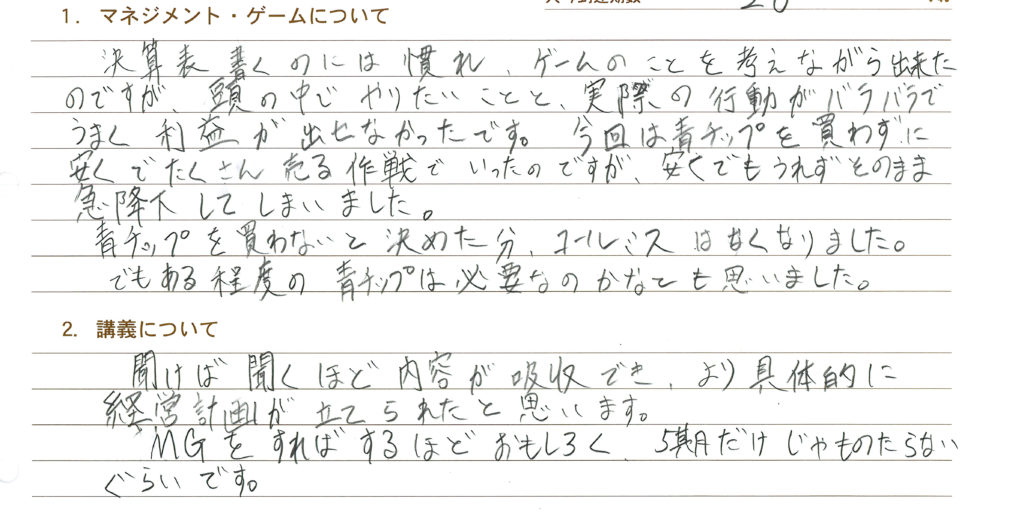 1. マネジメント・ゲームについて
20
決算表書くのには慣れ、ゲームのことを考えながら出来た
のですが、頭の中じやりたいことと、実際の行動がバラバラで
うまく利益が出せなかったです。今回は青チップを買わずに
安くでたくさん売る作戦でいったのですが、安くでもうれずそのまま
急降下してしまいました。
青チップを買わないと決めた分、コールミスはなくなりました。
でもある程度の青チップは必要なのかなとも思いました。
2. 講義について
聞けば聞くほど内容が吸収でき、より具体的に
経営計画が立てられたと思います。
MGをすればするほどおもしろく、5期だけじゃものたらない
ぐらいです。